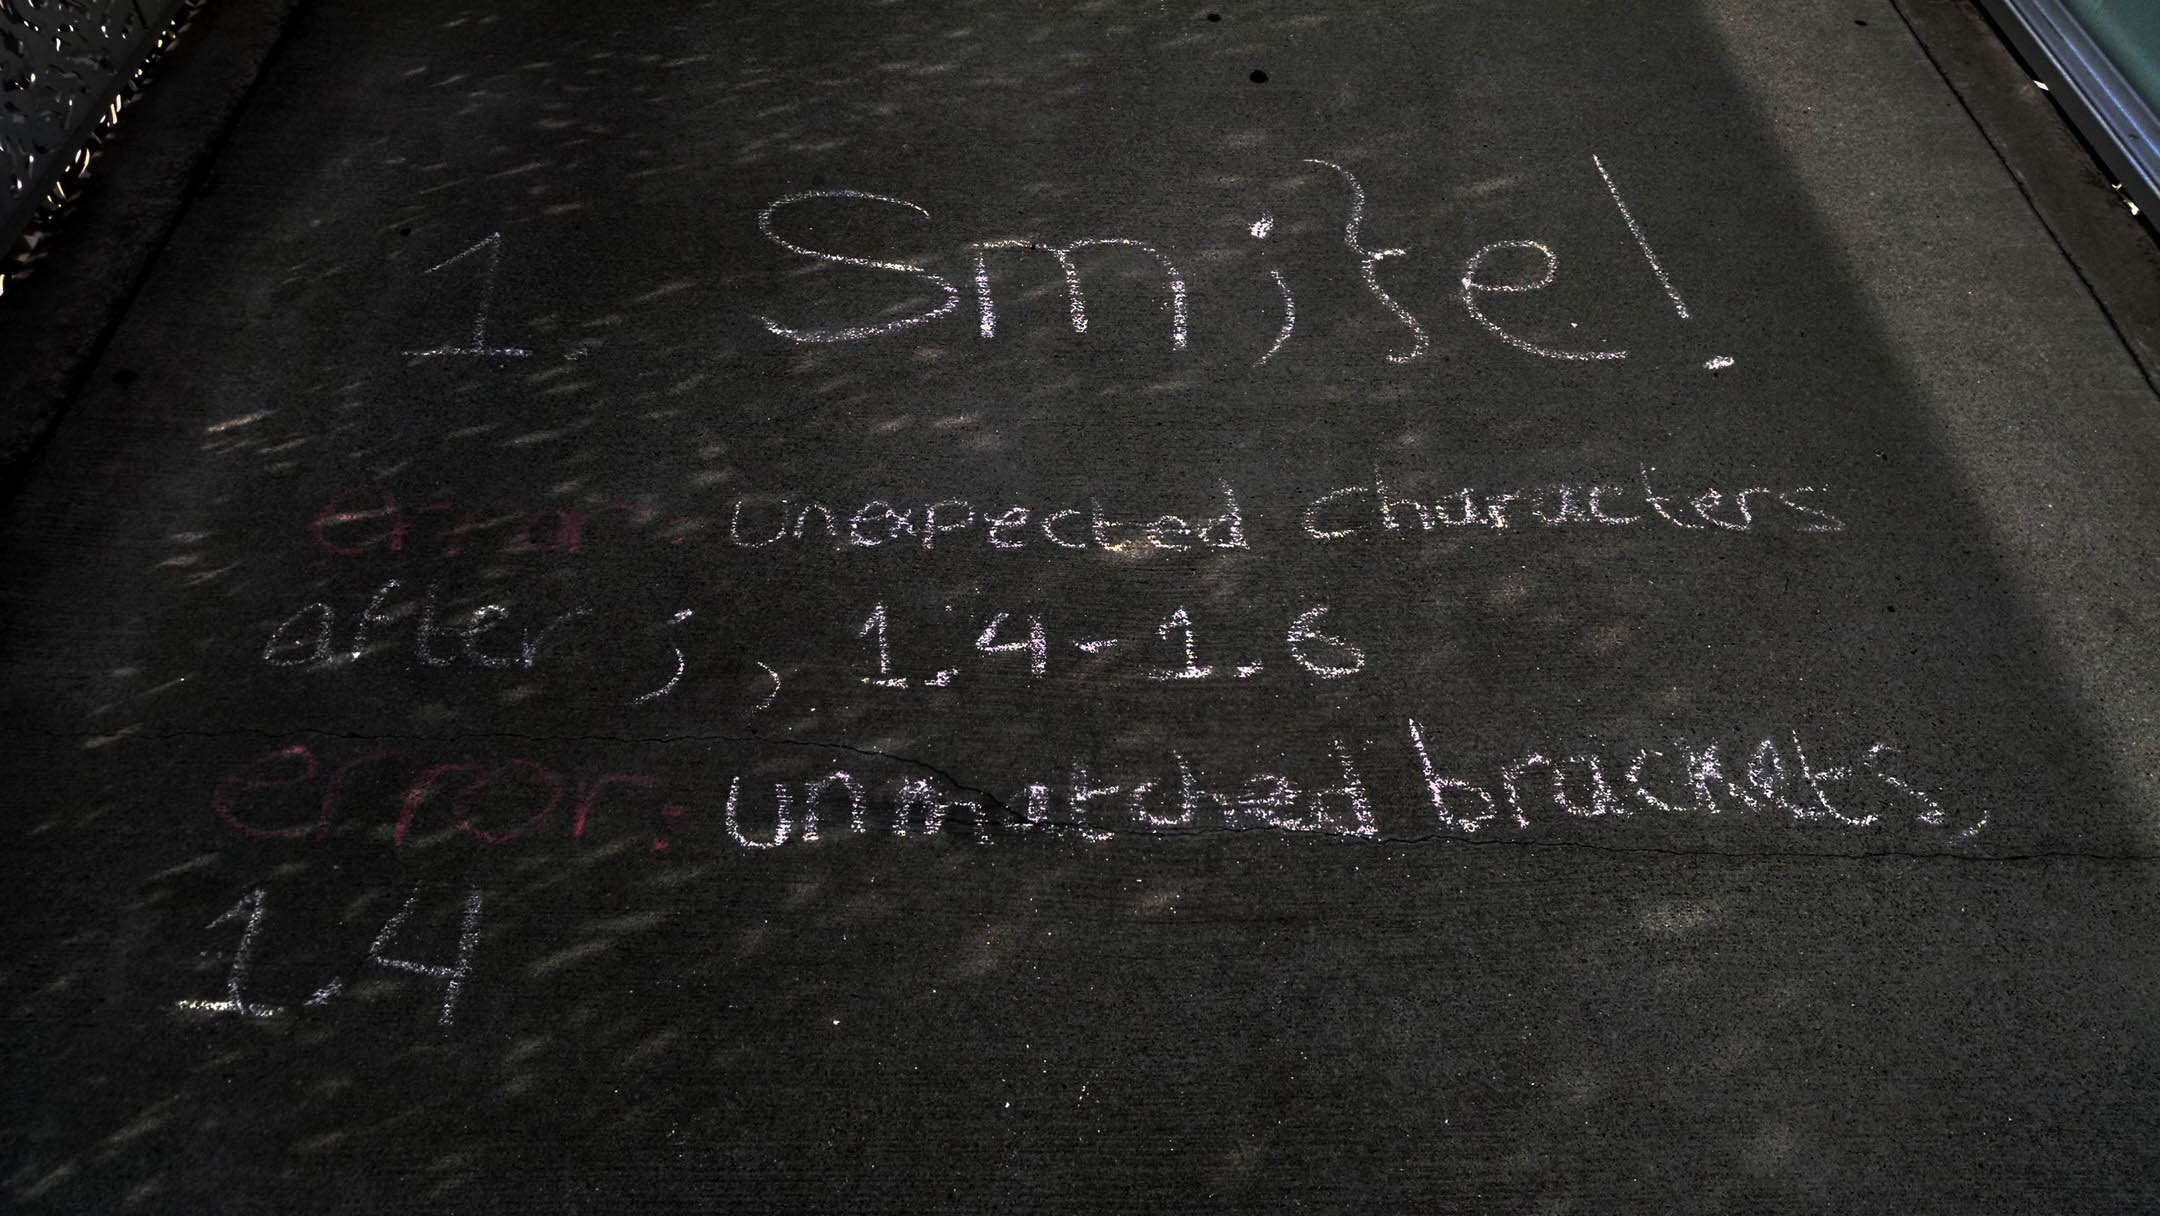 1. Sm;}e!
error: unexpected characters
after ;, 1.4-1.6
error: unmatched brackets,
1.4